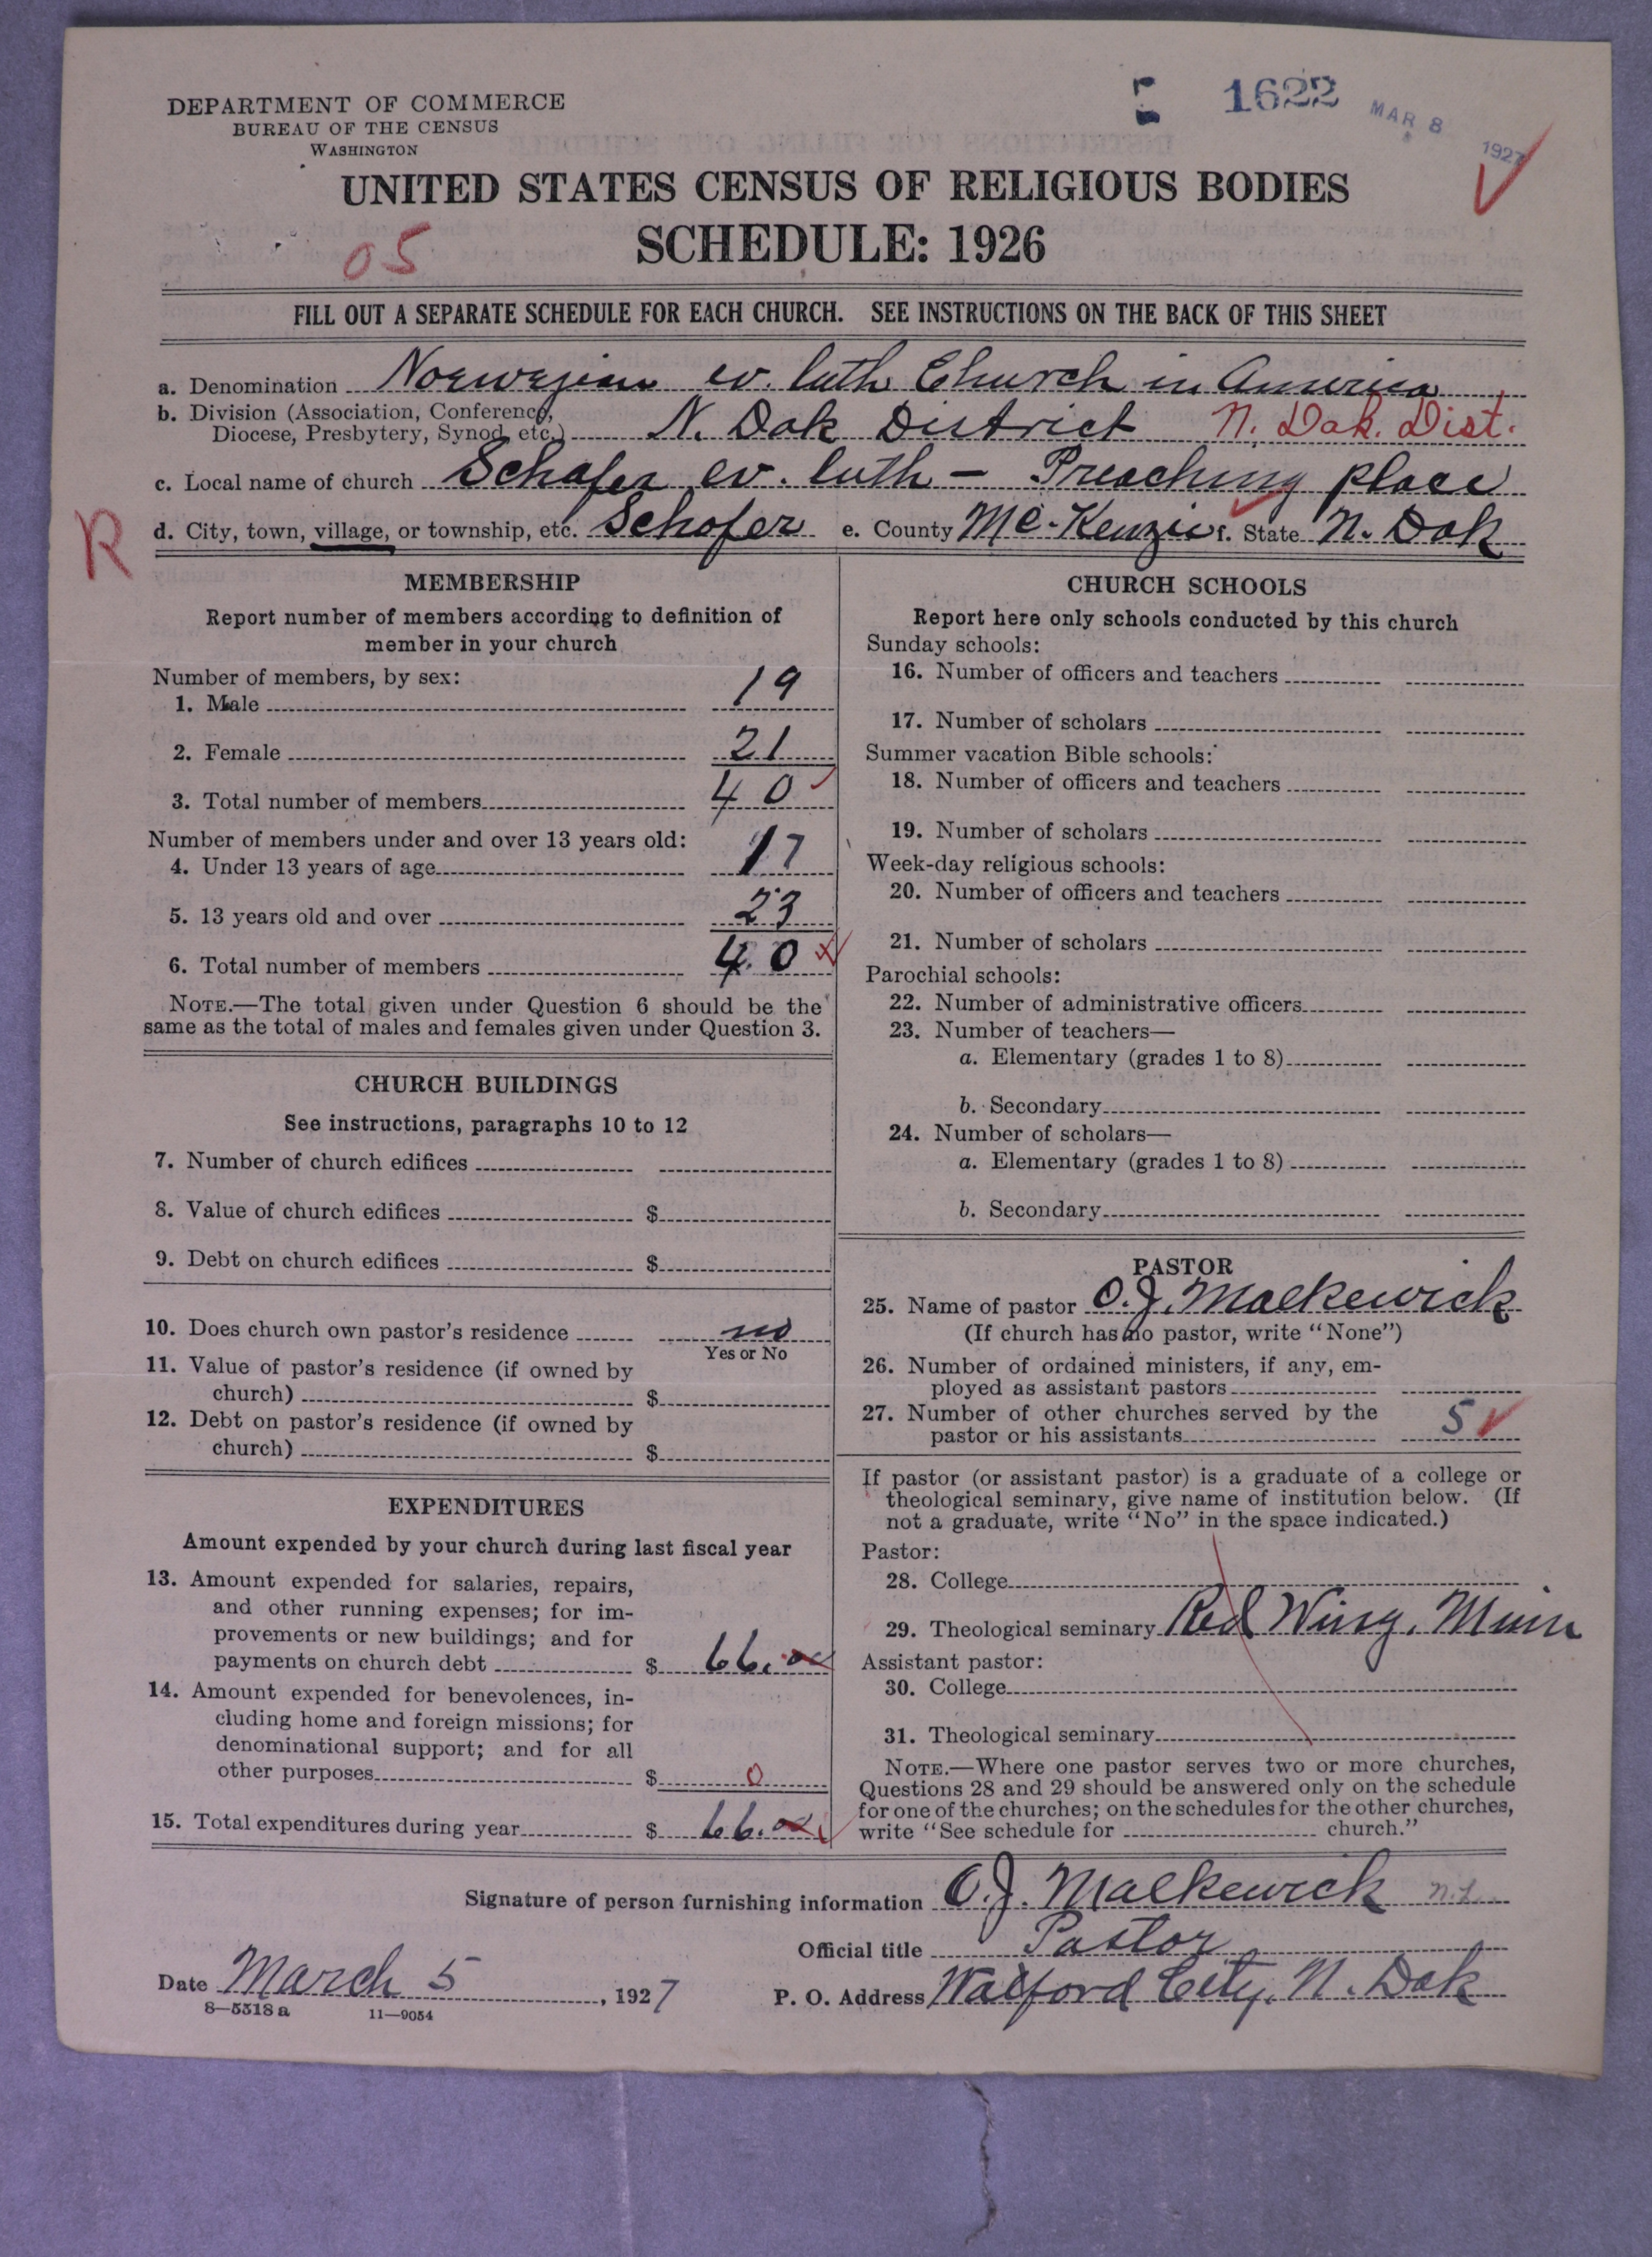 DEPARTMENT OF COMMERCE
BUREAU OF THE CENSUS
WASHINGTON
1622
MAR 8 1927
UNITED STATES CENSUS OF RELIGIOUS BODIES
SCHEDULE: 1926
05
FILL OUT A SEPARATE SCHEDULE FOR EACH CHURCH. SEE INSTRUCTIONS ON THE BACK OF THIS SHEET
a. Denomination Norwegian ev. luth Church in America
b. Division (Association, Conference, Diocese, Presbytery, Synod, etc.) N. Dak District N. Dak. Dist.
c. Local name of church Schafer ev. luth - Preaching place
R
d. City, town, village, or township, etc. Schafer e. County Mc-Kenzie f. State N. Dak
MEMBERSHIP
Report number of members according to definition of
member in your church
Number of members, by sex:
1. Male 19
2. Female 21
3. Total number of members 40
Number of members under and over 13 years old:
4. Under 13 years of age 17
5. 13 years old and over 23
6. Total number of members 40
NOTE.—The total given under Question 6 should be the
same as the total of males and females given under Question 3.
CHURCH BUILDINGS
See instructions, paragraphs 10 to 12
7. Number of church edifices
8. Value of church edifices $
9. Debt on church edifices $
10. Does church own pastor's residence no
Yes or No
11. Value of pastor's residence (if owned by
church) $
12. Debt on pastor's residence (if owned by
church) $
EXPENDITURES
Amount expended by your church during last fiscal year
13. Amount expended for salaries, repairs,
and other running expenses; for im-
provements or new buildings; and for
payments on church debt $ 66.00
14. Amount expended for benevolences, in-
cluding home and foreign missions; for
denominational support; and for all
other purposes $ 0
15. Total expenditures during year $ 66.00
CHURCH SCHOOLS
Report here only schools conducted by this church
Sunday schools:
16. Number of officers and teachers
17. Number of scholars
Summer vacation Bible schools:
18. Number of officers and teachers
19. Number of scholars
Week-day religious schools:
20. Number of officers and teachers
21. Number of scholars
Parochial schools:
22. Number of administrative officers
23. Number of teachers—
a. Elementary (grades 1 to 8)
b. Secondary
24. Number of scholars—
a. Elementary (grades 1 to 8)
b. Secondary
PASTOR
25. Name of pastor O.J. Malkewick
(If church has no pastor, write "None")
26. Number of ordained ministers, if any, em-
ployed as assistant pastors
27. Number of other churches served by the
pastor or his assistants 5
If pastor (or assistant pastor) is a graduate of a college or
theological seminary, give name of institution below. (If
not a graduate, write "No" in the space indicated.)
Pastor:
28. College
29. Theological seminary Red Wing, Minn
Assistant pastor:
30. College
31. Theological seminary
NOTE.—Where one pastor serves two or more churches,
Questions 28 and 29 should be answered only on the schedule
for one of the churches; on the schedules for the other churches,
write "See schedule for church."
Signature of person furnishing information O.J. Malkewick n.L.
Official title Pastor
Date March 5, 1927 P. O. Address Watford City, N. Dak
8—5518a 11—9054